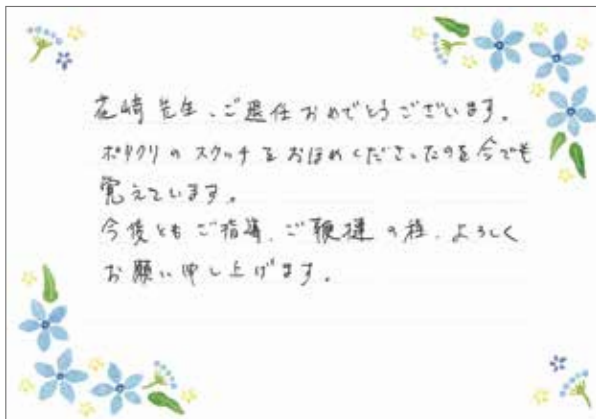 花崎先生、ご退任おめでとうございます。
ポリクリのスケッチをおほめくださったのを今でも
覚えています。
今後ともご指導、ご鞭撻の程、よろしく
お願い申し上げます。